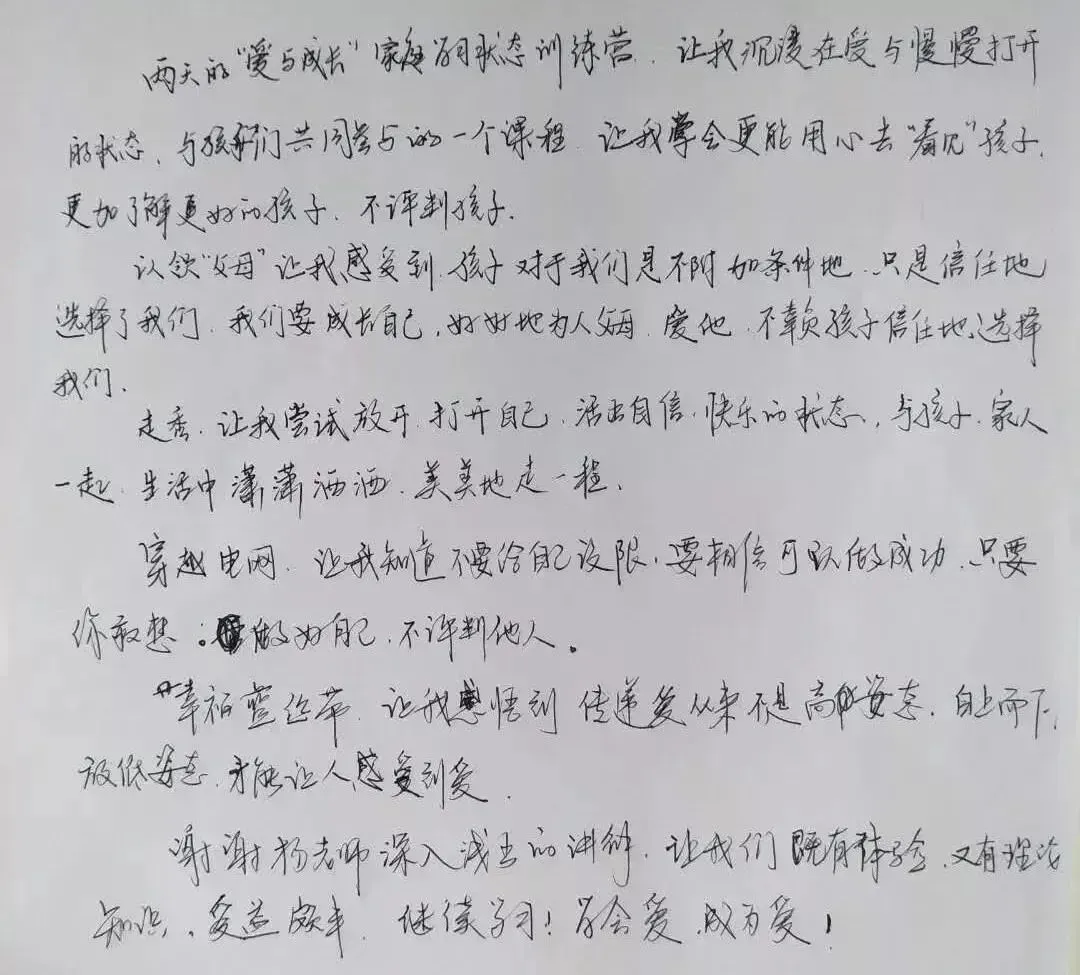 两天的“爱与成长”家庭学习状态训练营，让我沉浸在爱与慢慢打开
的状态，与孩子们共同参与的一个课程，让我学会更能用心去“看见”孩子，
更加了解更好的孩子、不评判孩子．
认领“父母”让我感受到，孩子对于我们是不附加条件地，只是信任地
选择了我们，我们要成长自己，好好地为人父母，爱他，不辜负孩子信任地选择
我们．
走秀，让我尝试放开，打开自己，活出自信，快乐的状态，与孩子、家人
一起，生活中潇潇洒洒、美美地走一程．
穿越电网，让我知道不要给自己设限，要相信可以做成功，只要
你敢想。做好自己，不评判他人。
“幸福蓝丝带，让我感悟到传递爱从来不是高姿态，自上而下，
放低姿态，才能让人感受到爱．
谢谢杨老师深入浅出的讲解，让我们既有体验，又有理论
知识，受益颇丰，继续学习！学会爱，成为爱！